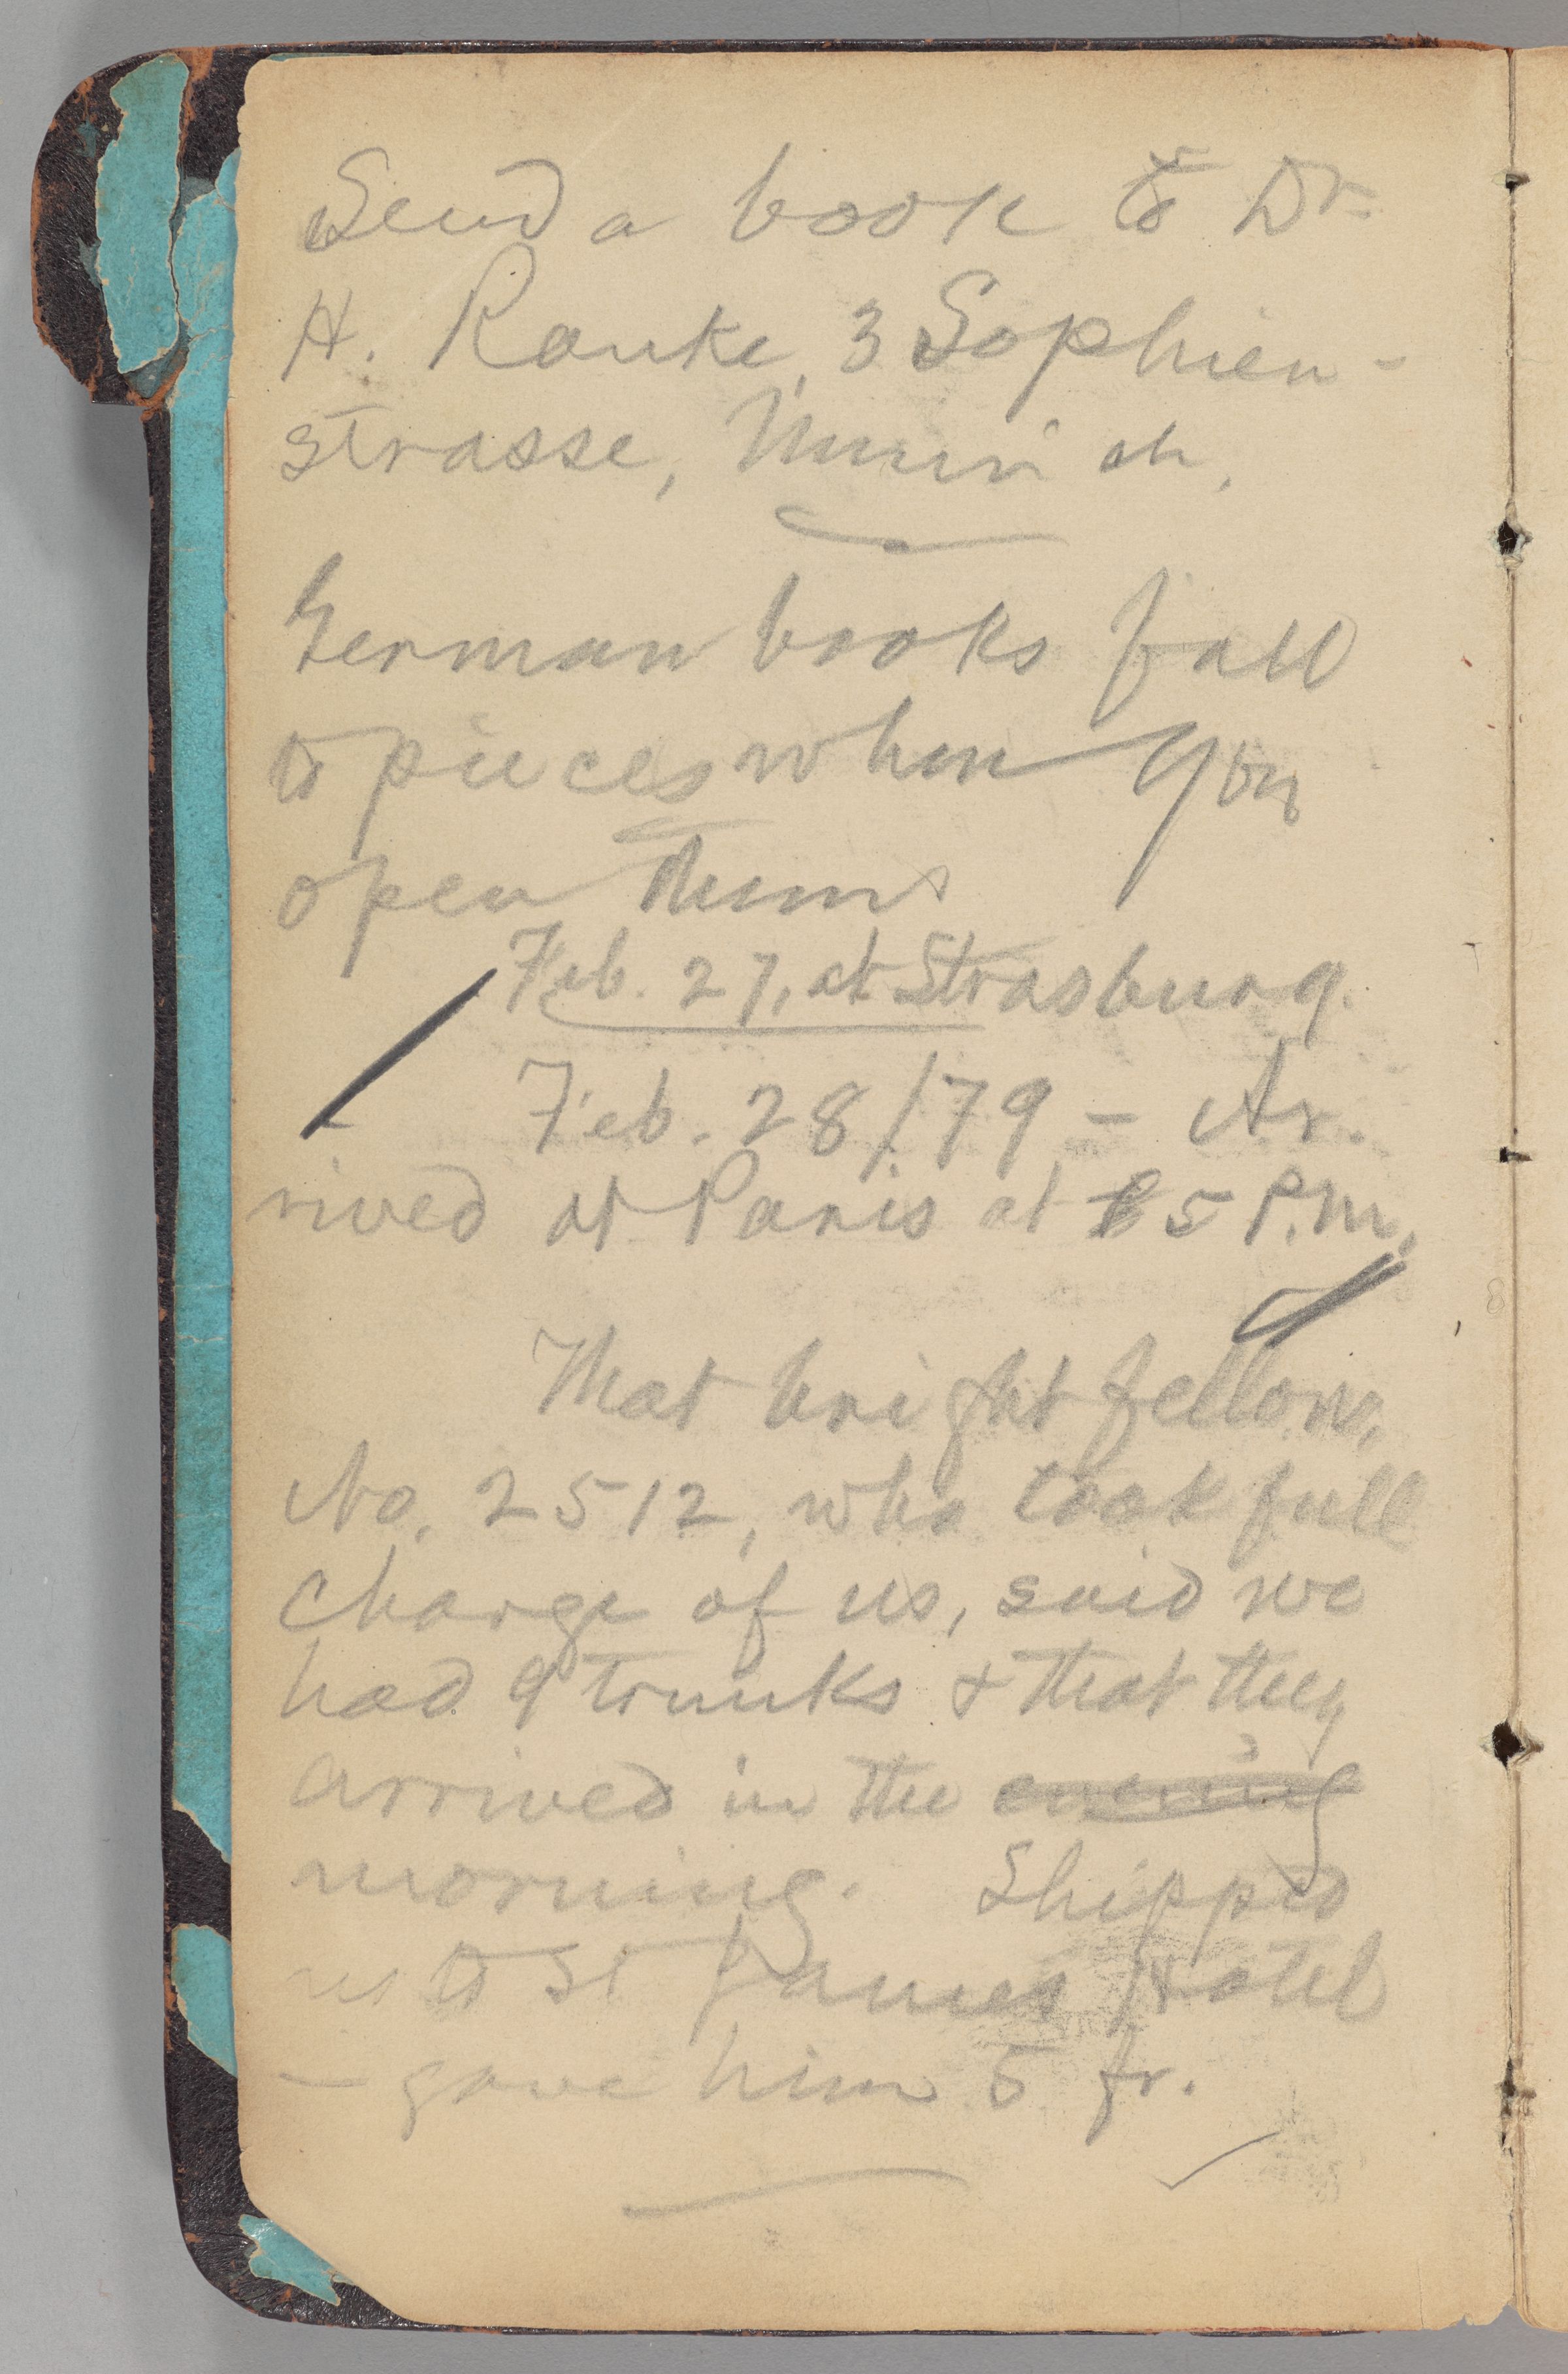 Send a book to Dr.
H. Ranke, 3 Sophien-
strasse, Munich.
German books fall
to pieces when you
open them.
Feb. 27, at Strasburg.
Feb. 28/79 – Ar-
rived at Paris at 5 P.M.
That bright fellow,
No. 2512, who took full
charge of us, said we
had 9 trunks & that they
arrived in the evening
morning. Shipped
us to St James Hotel
– gave him 5 fr.